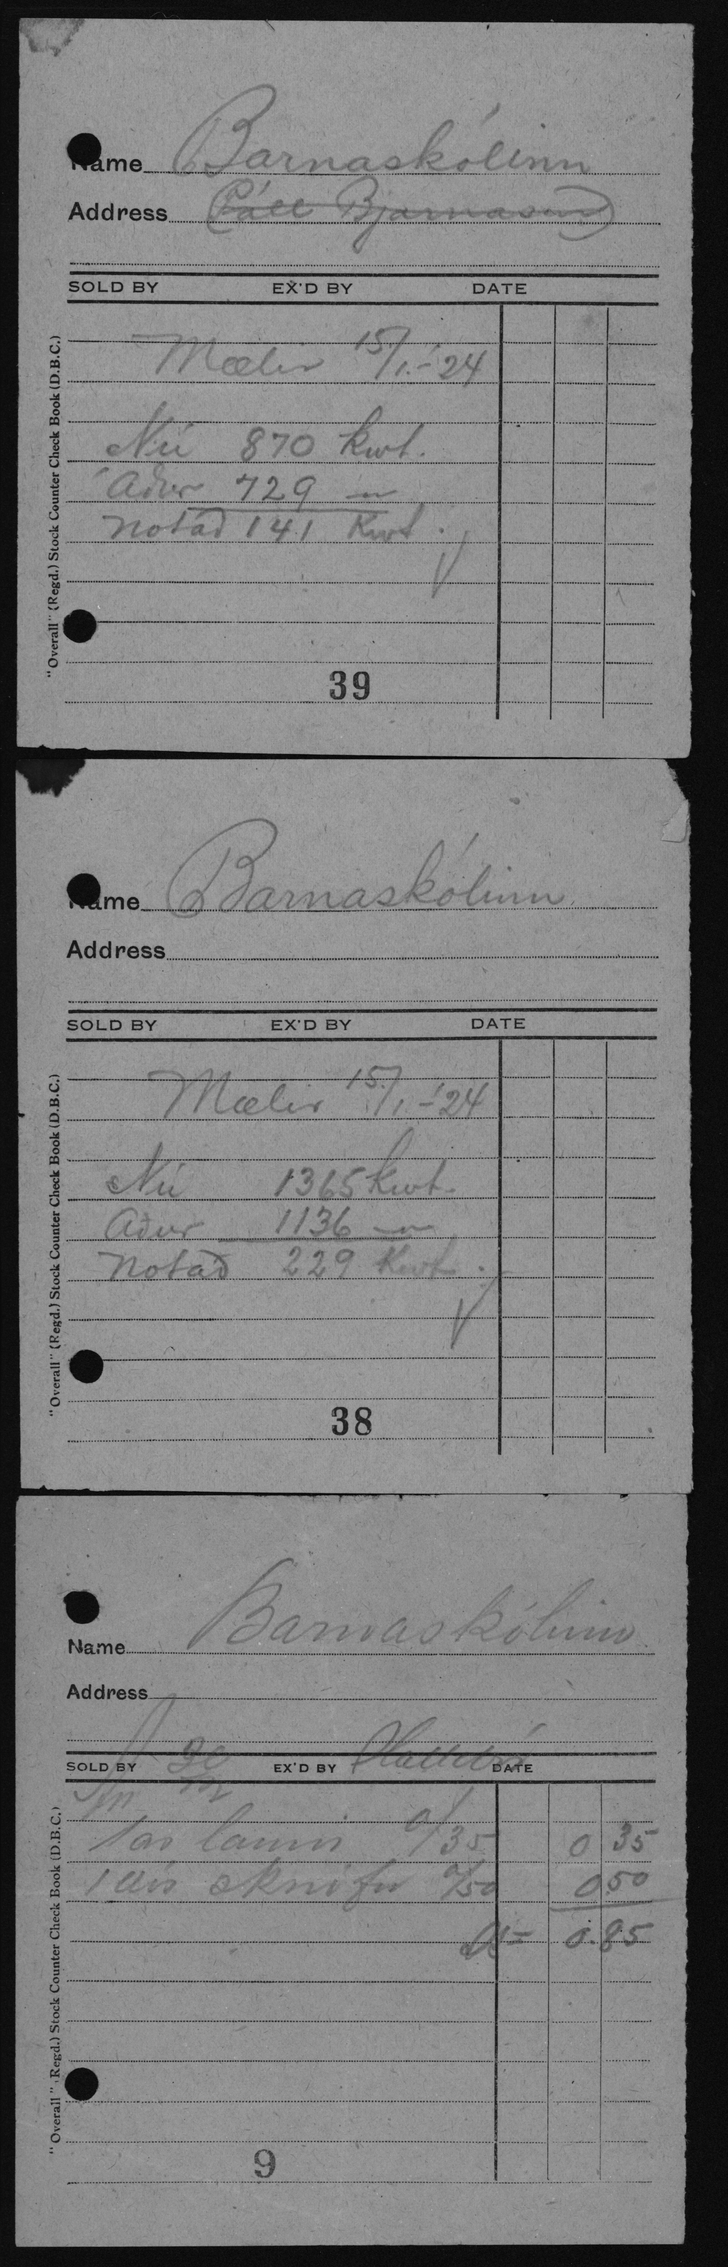 Name Barnaskólinn
Address (Páll Bjarnason)
SOLD BY EX'D BY DATE
Mælir 15/1.-'24
Nú 870 kwt.
Áður 729 "
Notað 141 Kwt.
39
"Overall" (Regd.) Stock Counter Check Book (D.B.C.)
Name Barnaskólinn
Address
SOLD BY EX'D BY DATE
Mælir 15/1.-'24
Nú 1365 kwt.
Áður 1136 "
Notað 229 Kwt.
38
"Overall" (Regd.) Stock Counter Check Book (D.B.C.)
Name Barnaskólinn
Address
SOLD BY EX'D BY DATE
0/35 0 35
0/50 0 50
0.85
9
"Overall" (Regd.) Stock Counter Check Book (D.B.C.)